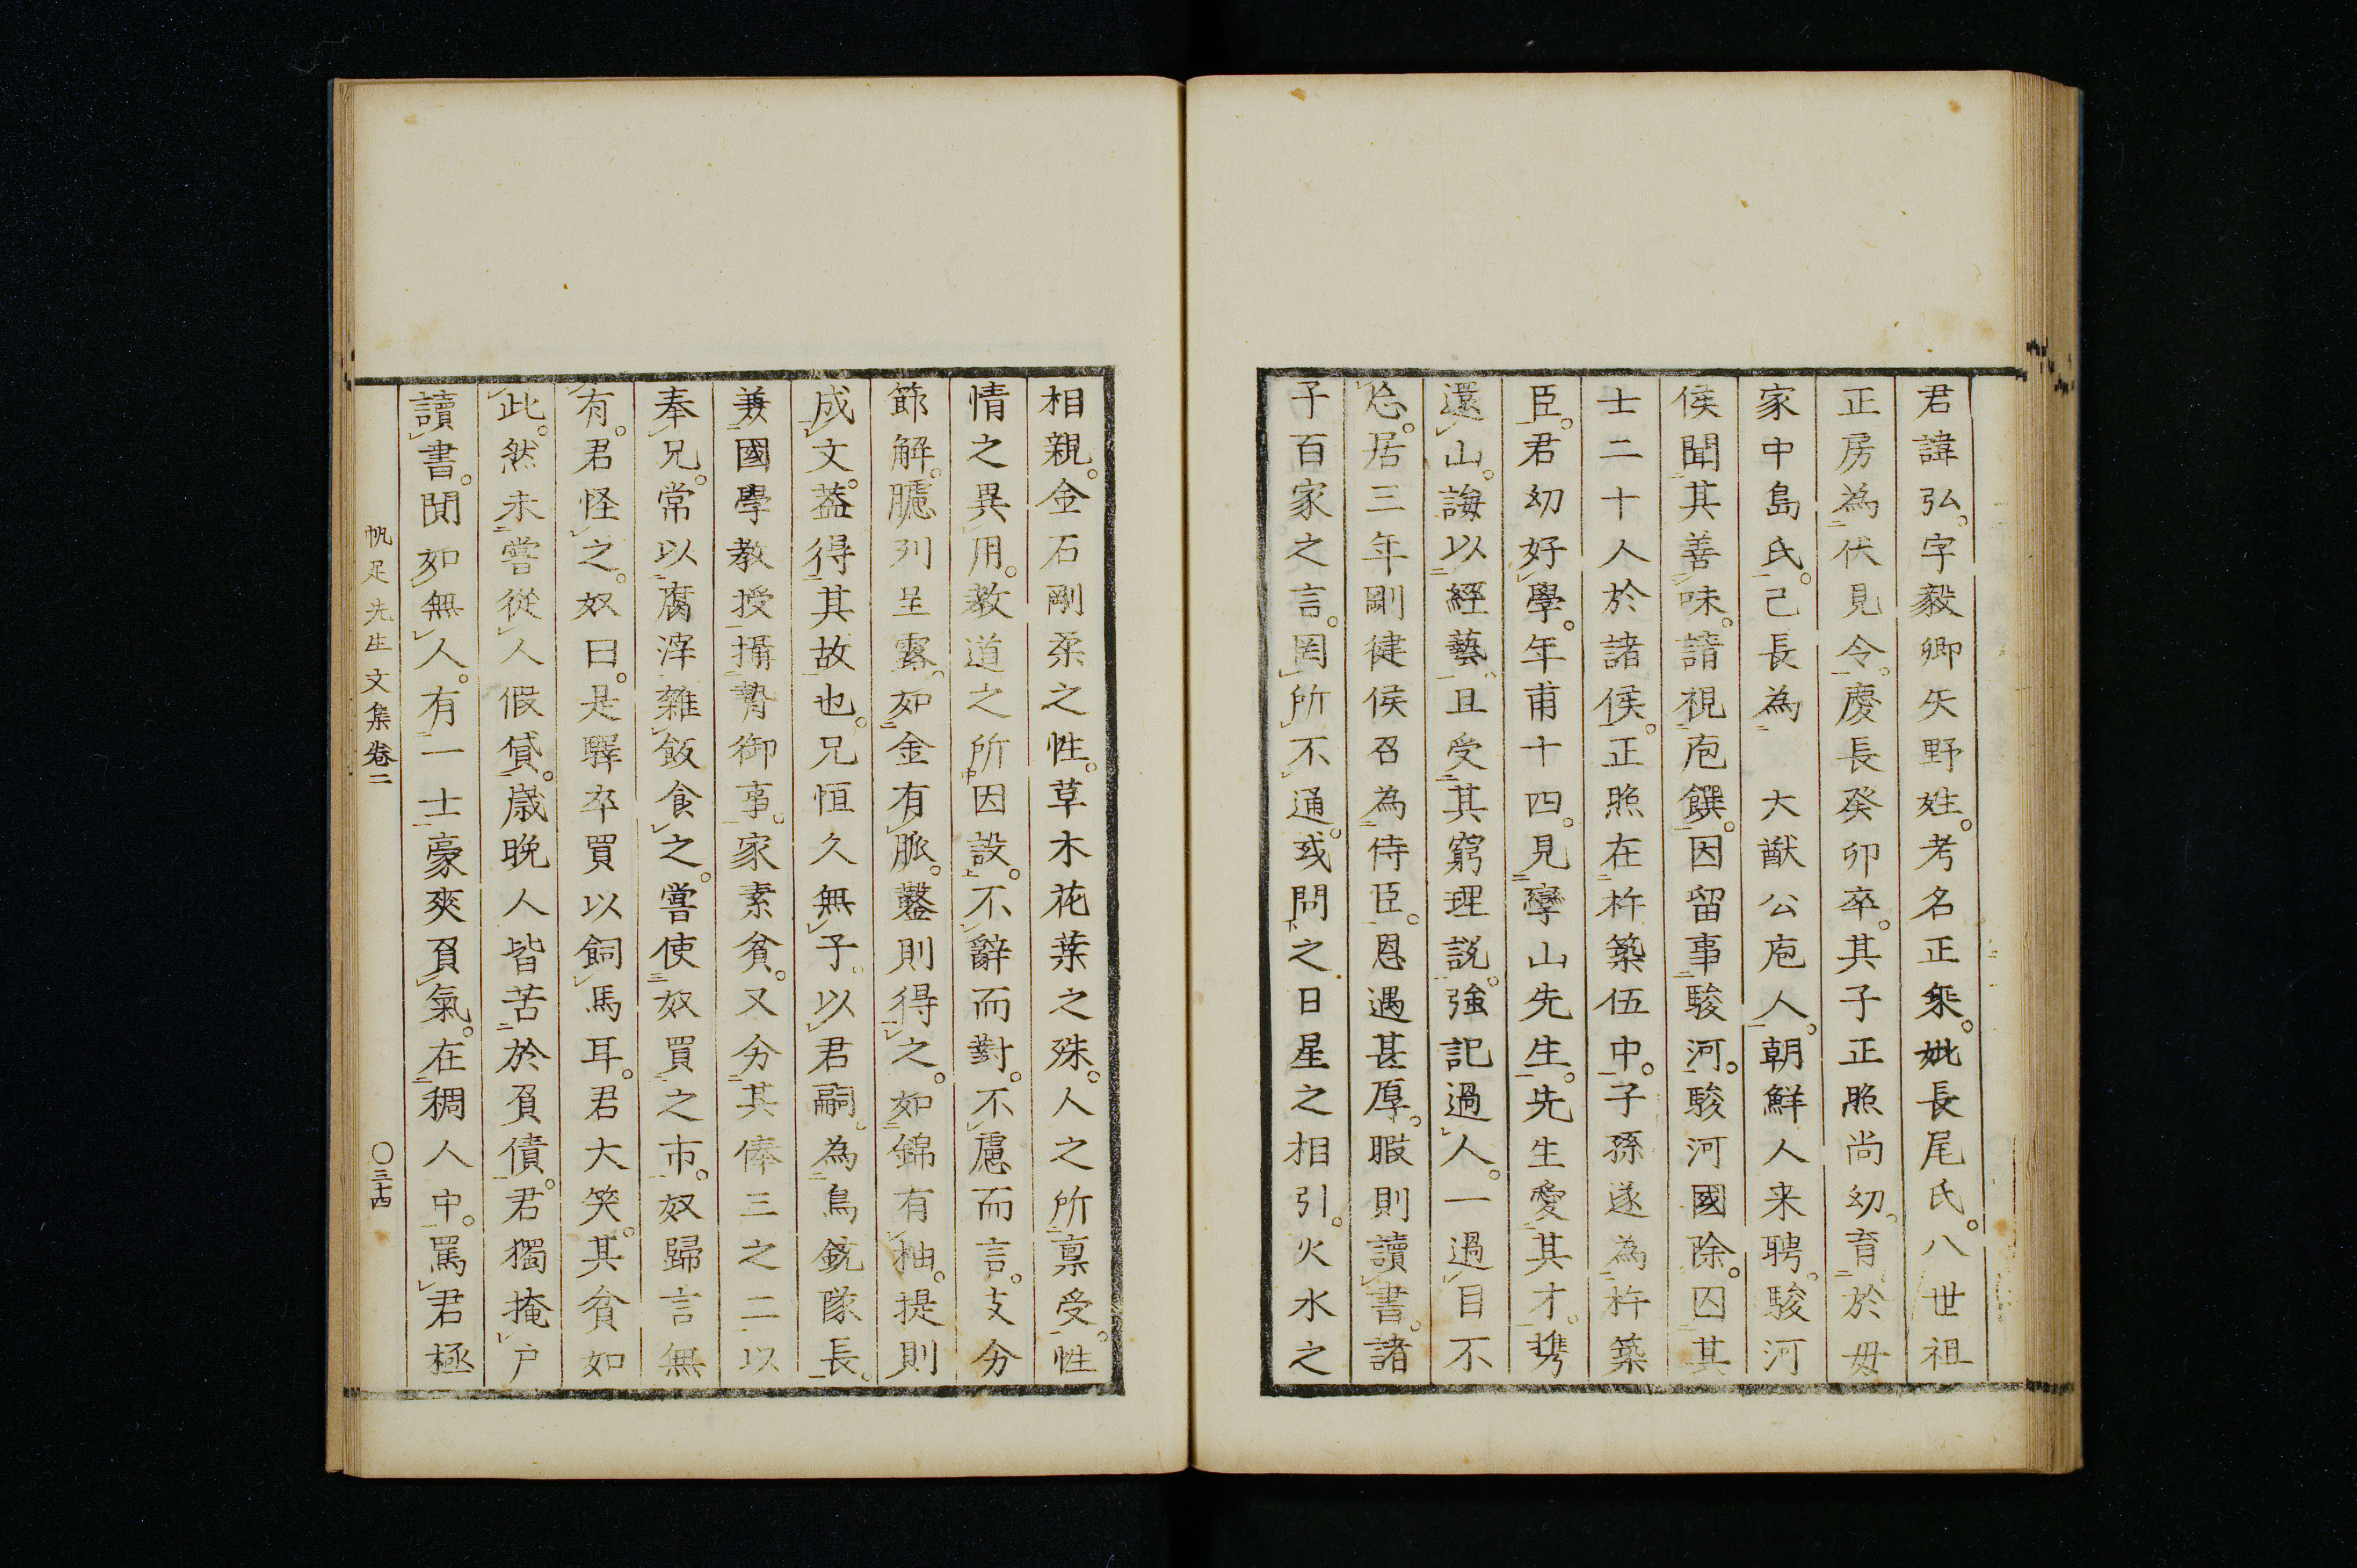 君諱弘。字毅卿矢野姓。考名正桒。妣長尾氏。八世祖
正房為伏見令。慶長癸卯卒。其子正照尚幼。育於毋
家中島氏。己長為　大猷公庖人。朝鮮人来聘。駿河
侯聞其善味。請視庖饌。因留事駿河。駿河國除。囚其
士二十人於諸侯。正照在杵築伍中。子孫遂為杵築
臣。君幼好學。年甫十四。見孿山先生。先生愛其才。携
還山。誨以經藝、且受其窮理説。強記過人。一過目不
忘。居三年剛健侯召為侍臣。恩遇甚厚。暇則讀書。諸
子百家之言。罔所不通。或問之日星之相引。火水之
相親。金石剛柔之性。草木花葉之殊。人之所稟受。性
情之異用。教道之所因設。不辭而對。不慮而言。支分
節解。臚列呈露。如金有脈。鑿則得之。如錦有柚。提則
成文。葢得其故也。兄恒久無子。以君嗣。為鳥銃隊長。
兼國學教授。攝膂御事。家素貧。又分其俸三之二以
奉兄。常以腐滓雜飯食之。嘗使奴買之市。奴歸言無
有。君怪之。奴曰。是驛卒買以飼馬耳。君大笑。其貧如
此。然未嘗從人假貸。歳晩人皆苦於負債。君獨掩户
讀書。聞如無人。有一士豪爽負氣。在稠人中。罵君極
帆足先生文集卷二
〇三十四